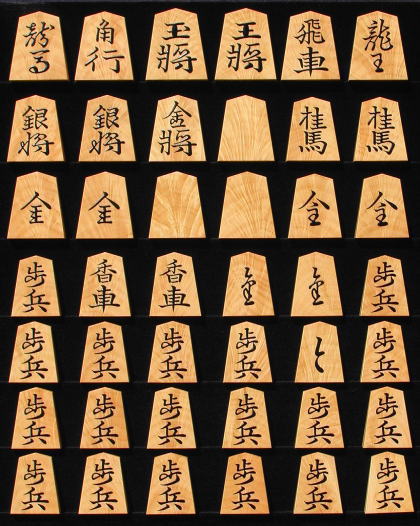 龍馬 角行 玉將 王將 飛車 龍王
銀将 銀将 金將 桂馬 桂馬
全 全 全 全
歩兵 香車 香車 歩兵
歩兵 歩兵 歩兵 歩兵 と 歩兵
歩兵 歩兵 歩兵 歩兵 歩兵 歩兵
歩兵 歩兵 歩兵 歩兵 歩兵 歩兵